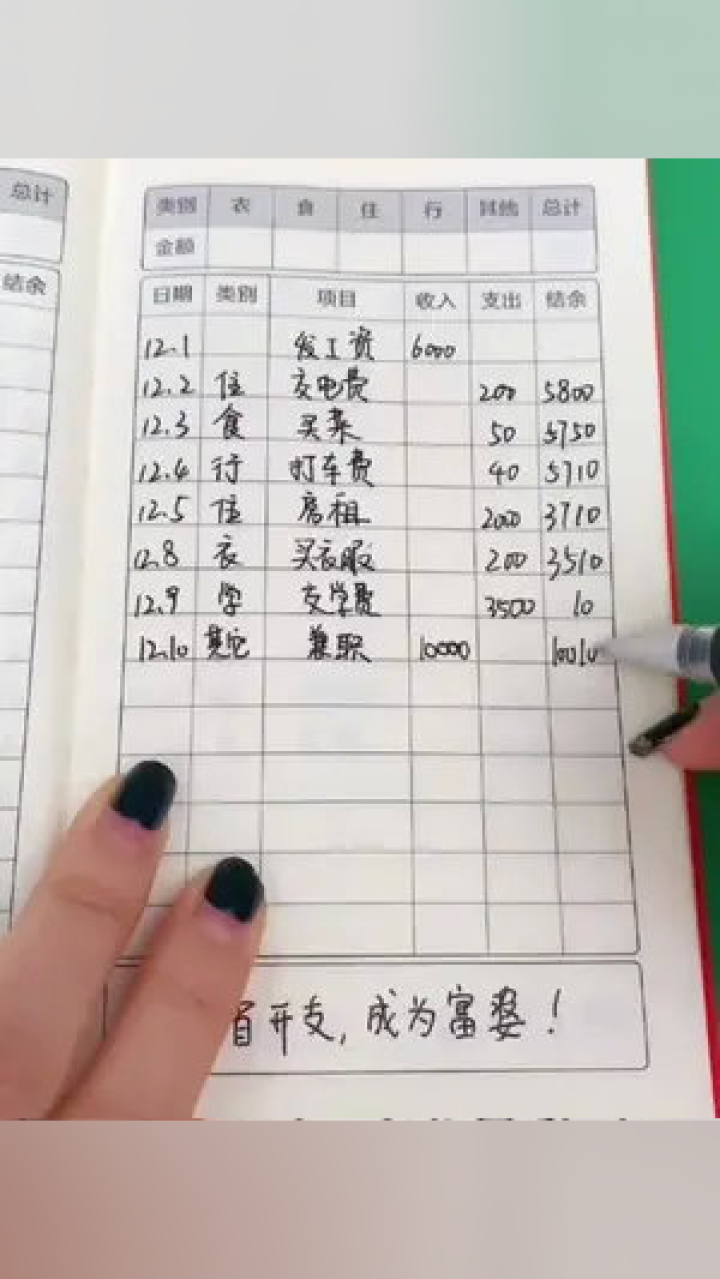 总计
结余
类别 衣 食 住 行 其他 总计
金额
日期 类别 项目 收入 支出 结余
12.1 发工资 6000
12.2 住 交电费 200 5800
12.3 食 买菜 50 5750
12.4 行 打车费 40 5710
12.5 住 房租 2000 3710
12.8 衣 买衣服 200 3510
12.9 学 交学费 3500 10
12.10 其它 兼职 10000 10010
省开支,成为富婆!